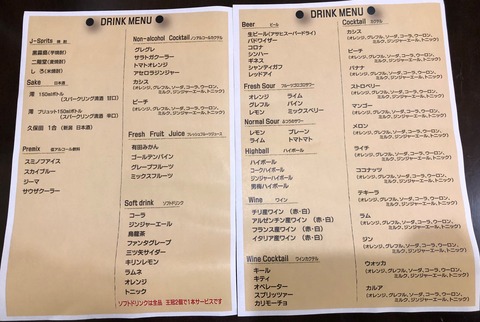 DRINK MENU
J-Sprits 焼 酎
黒霧島(芋焼酎)
二階堂(麦焼酎)
しろ(米焼酎)
Sake 日本酒
澪 150mlボトル
(スパークリング清酒 甘口)
澪 ブリュット150mlボトル
(スパークリング清酒 辛口)
久保田 1合 (新潟 日本酒)
Premix 低アルコール飲料
スミノフアイス
スカイブルー
ジーマ
サウザクーラー
Non-alcohol Cocktail ノンアルコールカクテル
グレグレ
サラトガクーラー
トマトオレンジ
アセロラジンジャー
カシス
(オレンジ, グレフル, ソーダ, コーラ, ウーロン,
ミルク, ジンジャーエール, トニック)
ピーチ
(オレンジ, グレフル, ソーダ, コーラ, ウーロン,
ミルク, ジンジャーエール, トニック)
Fresh Fruit Juice フレッシュフルーツジュース
有田みかん
ゴールデンパイン
グレープフルーツ
ミックスフルーツ
Soft drink ソフトドリンク
コーラ
ジンジャーエール
烏龍茶
ファンタグレープ
三ツ矢サイダー
キリンレモン
ラムネ
オレンジ
トニック
ソフトドリンクは全品 王冠2個で1本サービスです
DRINK MENU
Beer ビール
生ビール(アサヒスーパードライ)
バドワイザー
コロナ
シンハー
ギネス
シャンディガフ
レッドアイ
Fresh Sour フルーツゴロゴロサワー
オレンジ ライム
グレフル パイン
レモン ミックスベリー
Normal Sour ふつうのサワー
レモン プレーン
ライム トマトマト
Highball ハイボール
ハイボール
コークハイボール
ジンジャーハイボール
男梅ハイボール
Wine ワイン
チリ産ワイン (赤・白)
アルゼンチン産ワイン (赤・白)
フランス産ワイン (赤・白)
イタリア産ワイン (赤・白)
Wine Cocktail ワインカクテル
キール
キティ
オペレーター
スプリッツァー
カリモーチョ
Cocktail カクテル
カシス
(オレンジ, グレフル, ソーダ, コーラ, ウーロン,
ミルク, ジンジャーエール, トニック)
ピーチ
(オレンジ, グレフル, ソーダ, コーラ, ウーロン,
ミルク, ジンジャーエール, トニック)
バナナ
(オレンジ, グレフル, ソーダ, コーラ, ウーロン,
ミルク, ジンジャーエール, トニック)
ストロベリー
(オレンジ, グレフル, ソーダ, コーラ, ウーロン,
ミルク, ジンジャーエール, トニック)
マンゴー
(オレンジ, グレフル, ソーダ, コーラ, ウーロン,
ミルク, ジンジャーエール, トニック)
メロン
(オレンジ, グレフル, ソーダ, コーラ, ウーロン,
ミルク, ジンジャーエール, トニック)
ライチ
(オレンジ, グレフル, ソーダ, コーラ, ウーロン,
ミルク, ジンジャーエール, トニック)
ココナッツ
(オレンジ, グレフル, ソーダ, コーラ, ウーロン,
ミルク, ジンジャーエール, トニック)
テキーラ
(オレンジ, グレフル, ソーダ, コーラ, ウーロン,
ミルク, ジンジャーエール, トニック)
ラム
(オレンジ, グレフル, ソーダ, コーラ, ウーロン,
ミルク, ジンジャーエール, トニック)
ジン
(オレンジ, グレフル, ソーダ, コーラ, ウーロン,
ミルク, ジンジャーエール, トニック)
ウォッカ
(オレンジ, グレフル, ソーダ, コーラ, ウーロン,
ミルク, ジンジャーエール, トニック)
カルア
(オレンジ, グレフル, ソーダ, コーラ, ウーロン,
ミルク, ジンジャーエール, トニック)